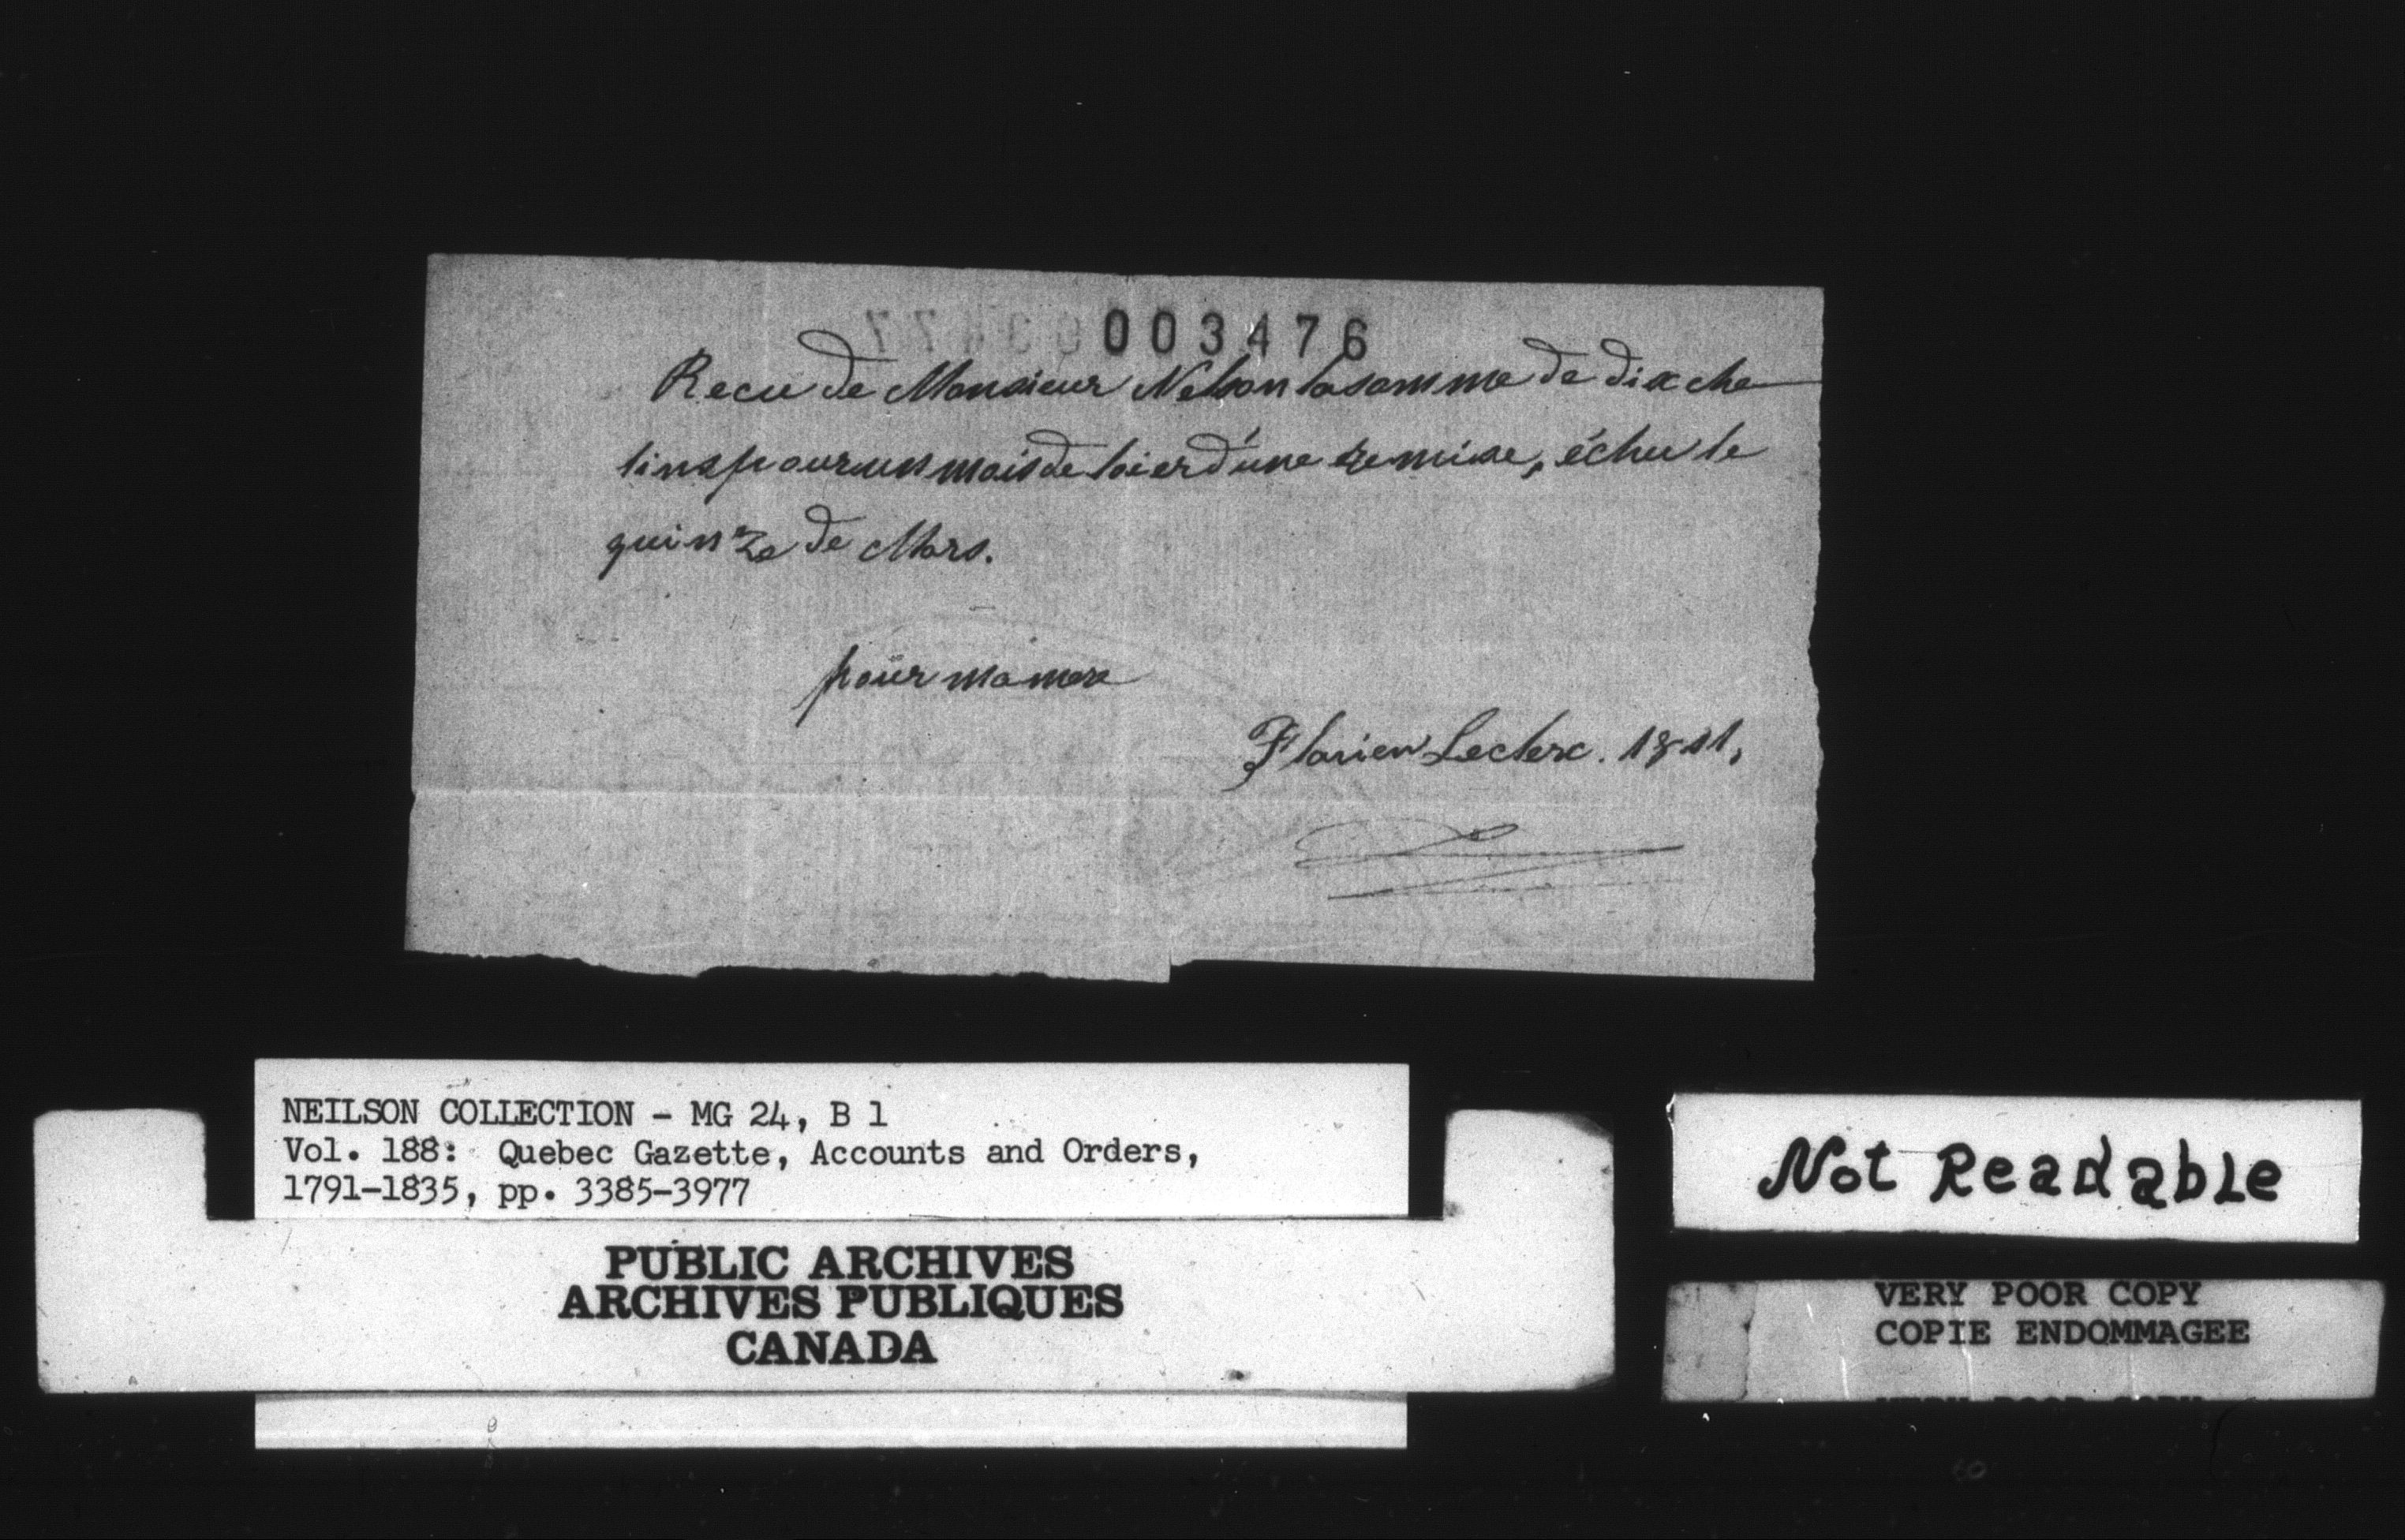 003476
Recu de Monsieur Nelson la somme de dix che
lins pour un mois de loier d'une remise, échu le
quinze de Mars.
pour ma mere
Florien Leclerc. 1811,
NEILSON COLLECTION - MG 24, B 1
Vol. 188: Quebec Gazette, Accounts and Orders,
1791-1835, pp. 3385-3977
PUBLIC ARCHIVES
ARCHIVES PUBLIQUES
CANADA
Not Readable
VERY POOR COPY
COPIE ENDOMMAGEE